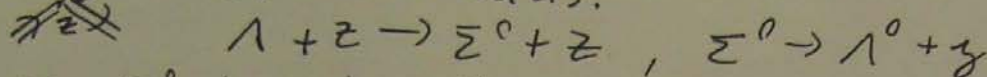 Λ + Z → Σ⁰ + Z , Σ⁰ → Λ⁰ + γ